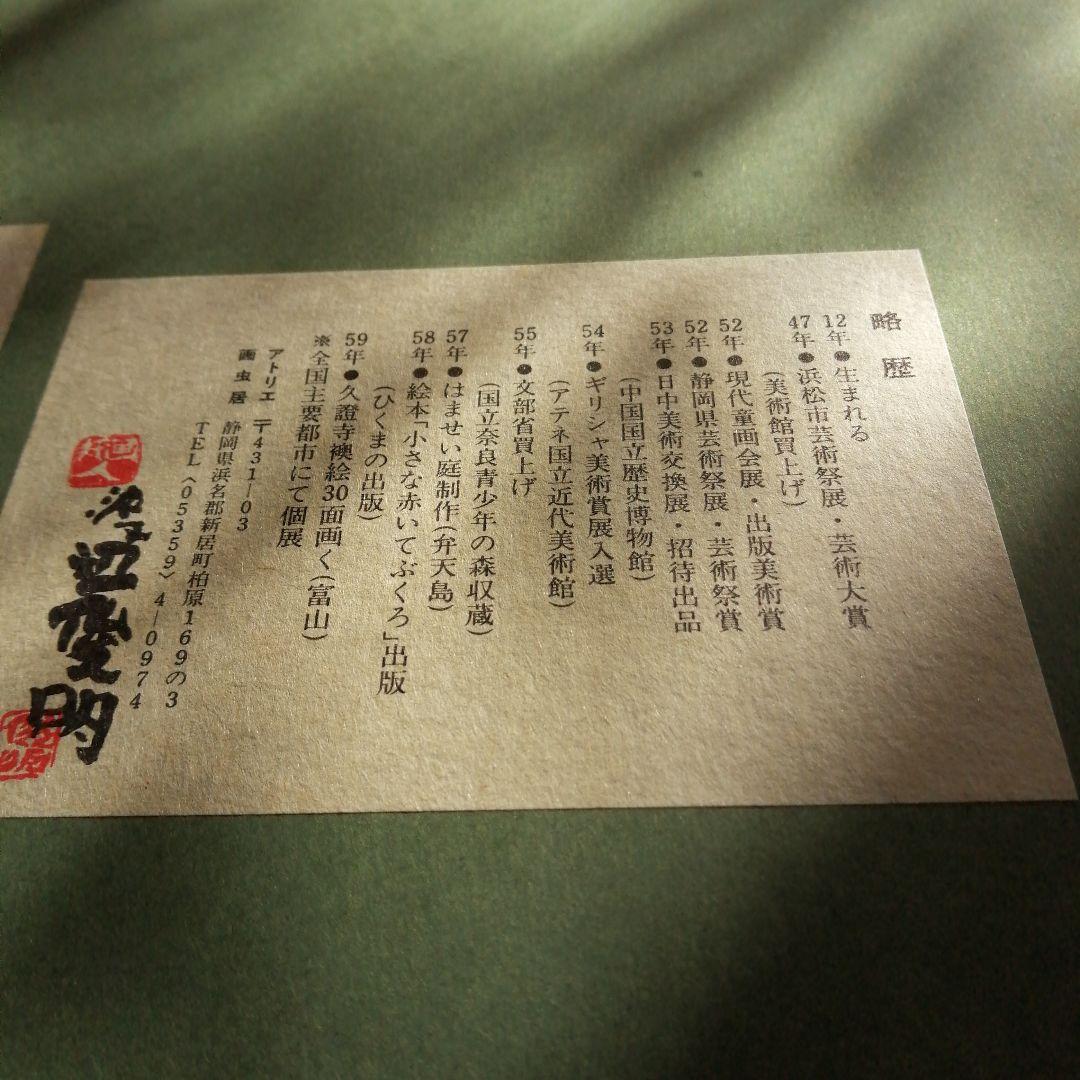 略歴
12年●生まれる
47年●浜松市芸術祭展・芸術大賞
(美術館買上げ)
52年●現代童画会展・出版美術賞
52年●静岡県芸術祭展・芸術祭賞
53年●日中美術交換展・招待出品
(中国国立歴史博物館)
54年●ギリシャ美術賞展入選
(アテネ国立近代美術館)
55年●文部省買上げ
(国立奈良青少年の森収蔵)
57年●はませい庭制作(弁天島)
58年●絵本「小さな赤いてぶくろ」出版
(ひくまの出版)
59年●久證寺襖絵30面画く(富山)
※全国主要都市にて個展
アトリエ 〒431―03
画虫居 静岡県浜名郡新居町柏原169の3
TEL〈05359〉4―0974